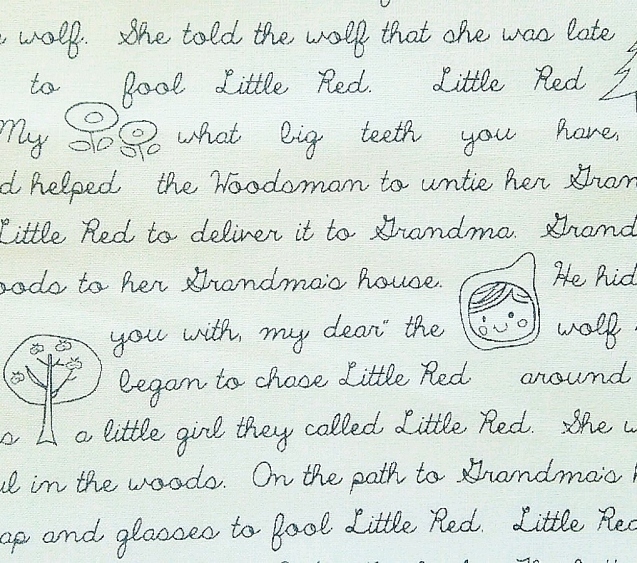 wolf. She told the wolf that she was late
to fool Little Red. Little Red
My what big teeth you have,
helped the Woodsman to untie her
Little Red to deliver it to Grandma.
to her Grandma's house. He hid
you with, my dear" the wolf
began to chase Little Red around
a little girl they called Little Red. She
in the woods. On the path to Grandma's
and glasses to fool Little Red. Little Red